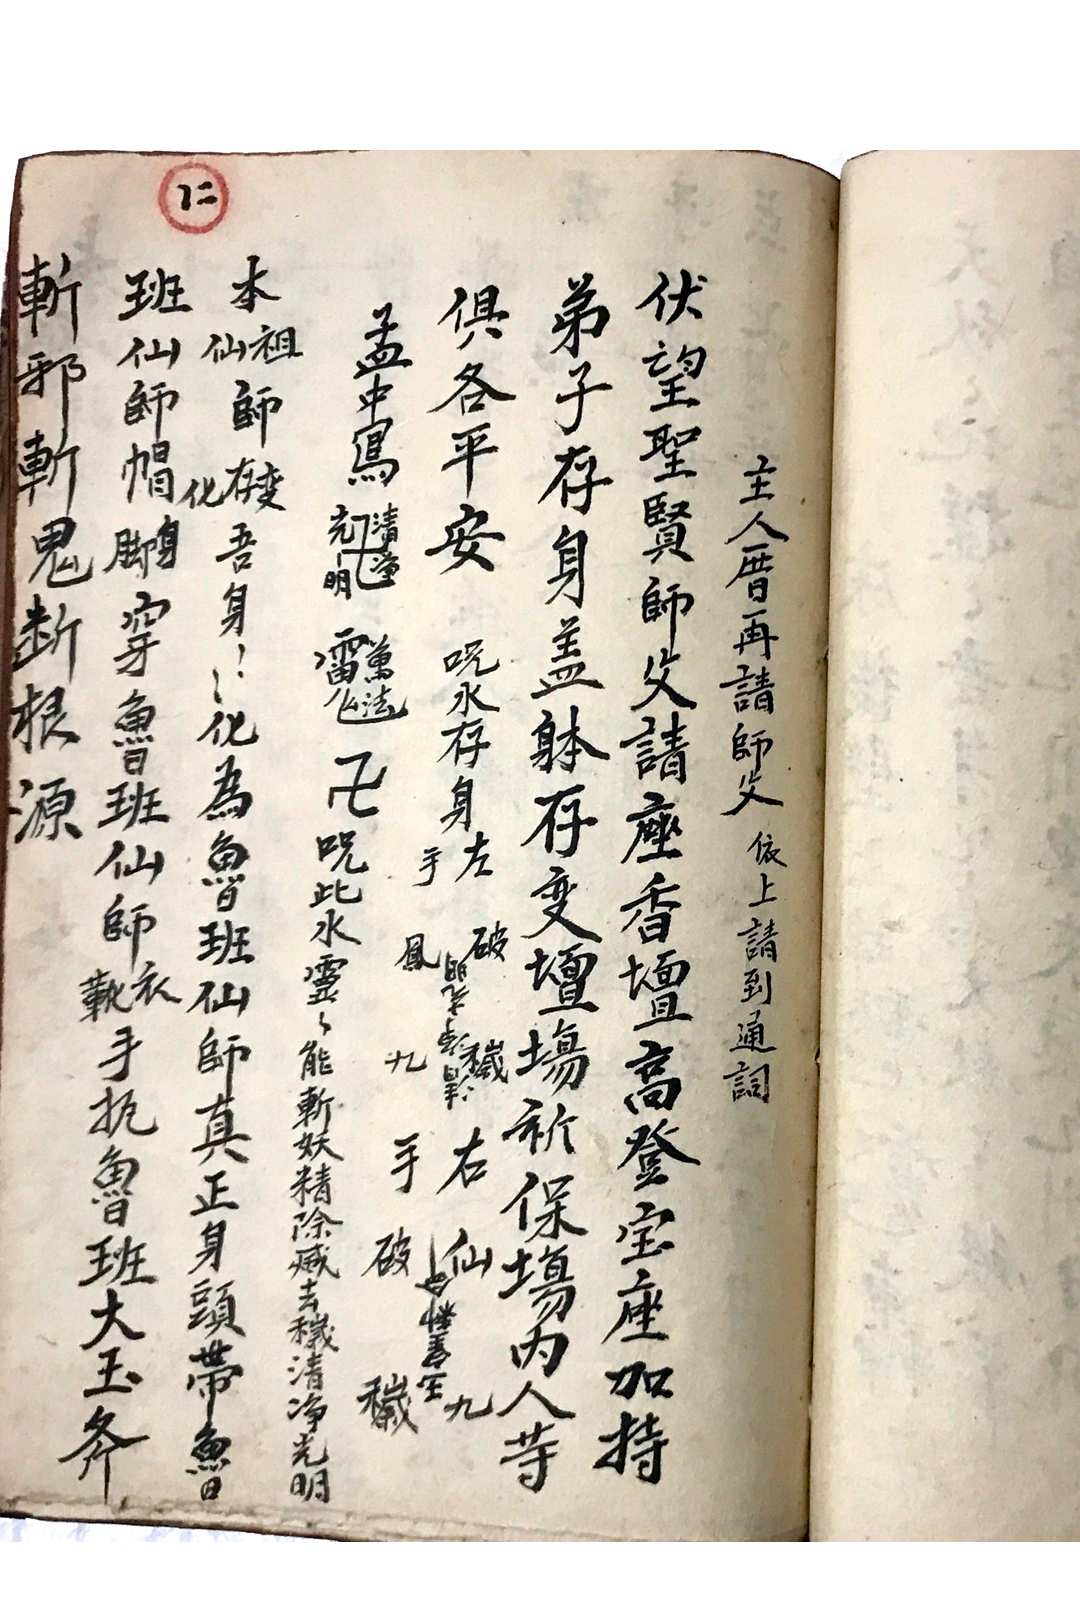 主人厝再請師父 依上請到通詞
伏望聖賢師父請座香壇高登宝座加持
弟子存身盖躰存变壇塲祈保塲内人等
俱各平安 呪水存身左手 破穢 鳳九 右手 仙九 破穢
孟中寫 清净 光明 萬法 卍 呪此水靈〻能斬妖精除
去穢清净光明
本祖仙師存变化吾身〻〻化為魯班仙師真正身頭帶魯
班仙師帽身脚穿魯班仙師衣靴手扼魯班大玉斧
斬邪斬鬼断根源